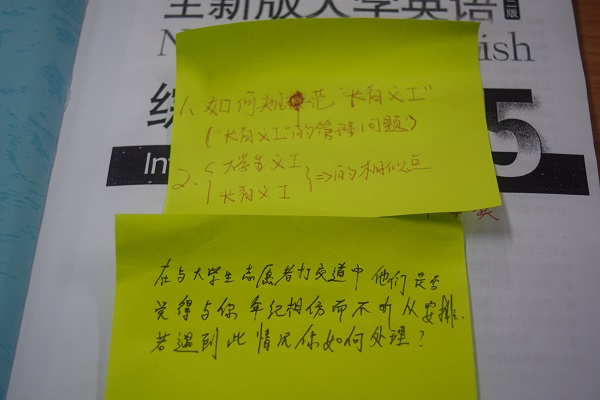 全新版大学英语
ish
综
5
Int
1、如何规范"长前义工"
("长前义工"的管理问题)
2、{大学生义工
长前义工}⇒的相似点
在与大学生志愿者打交道中他们是否
觉得与你年纪相仿而不听从安排.
若遇到此情况你如何处理?